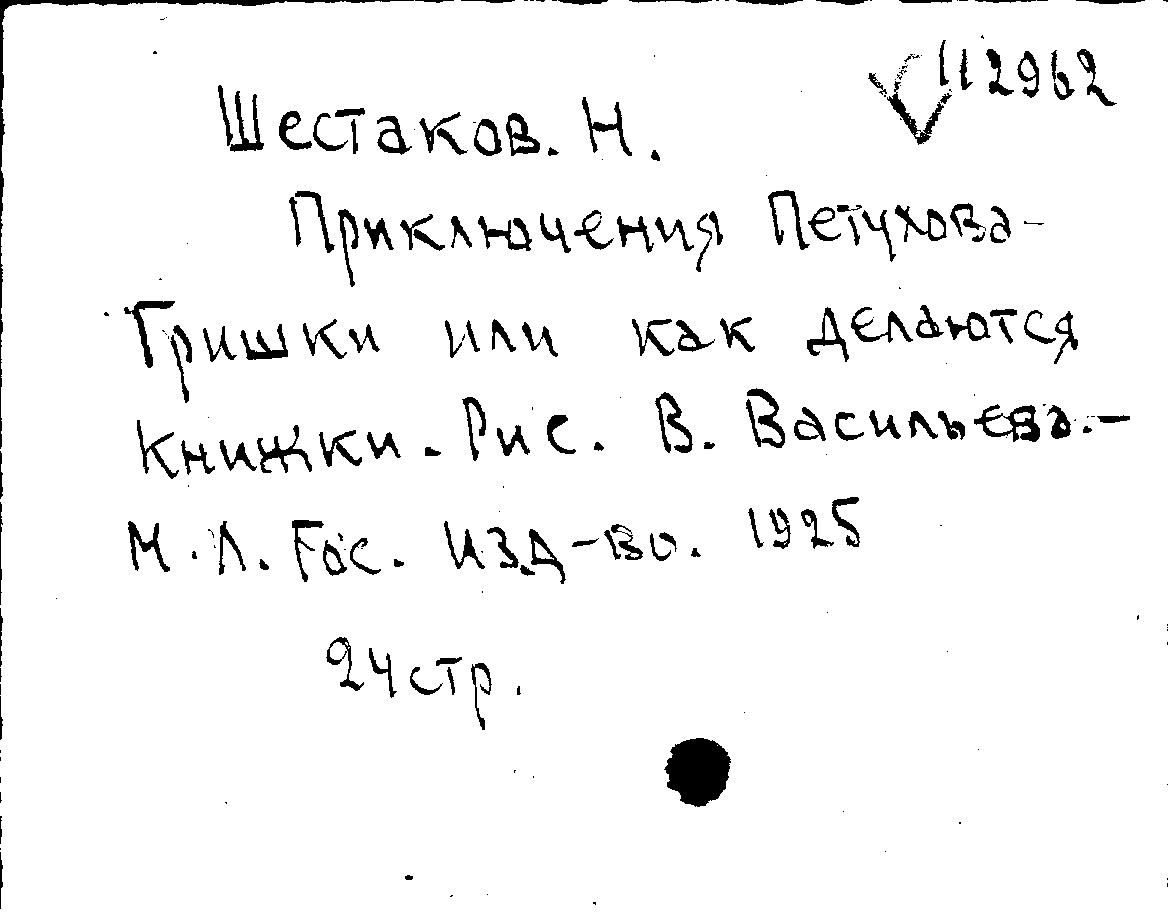 112962
Шестаков. Н.
Приключения Петухова-
Гришки или как делаются
книжки. Рис. В. Васильева.-
М. Л. Гос. изд-во. 1925
24 стр.